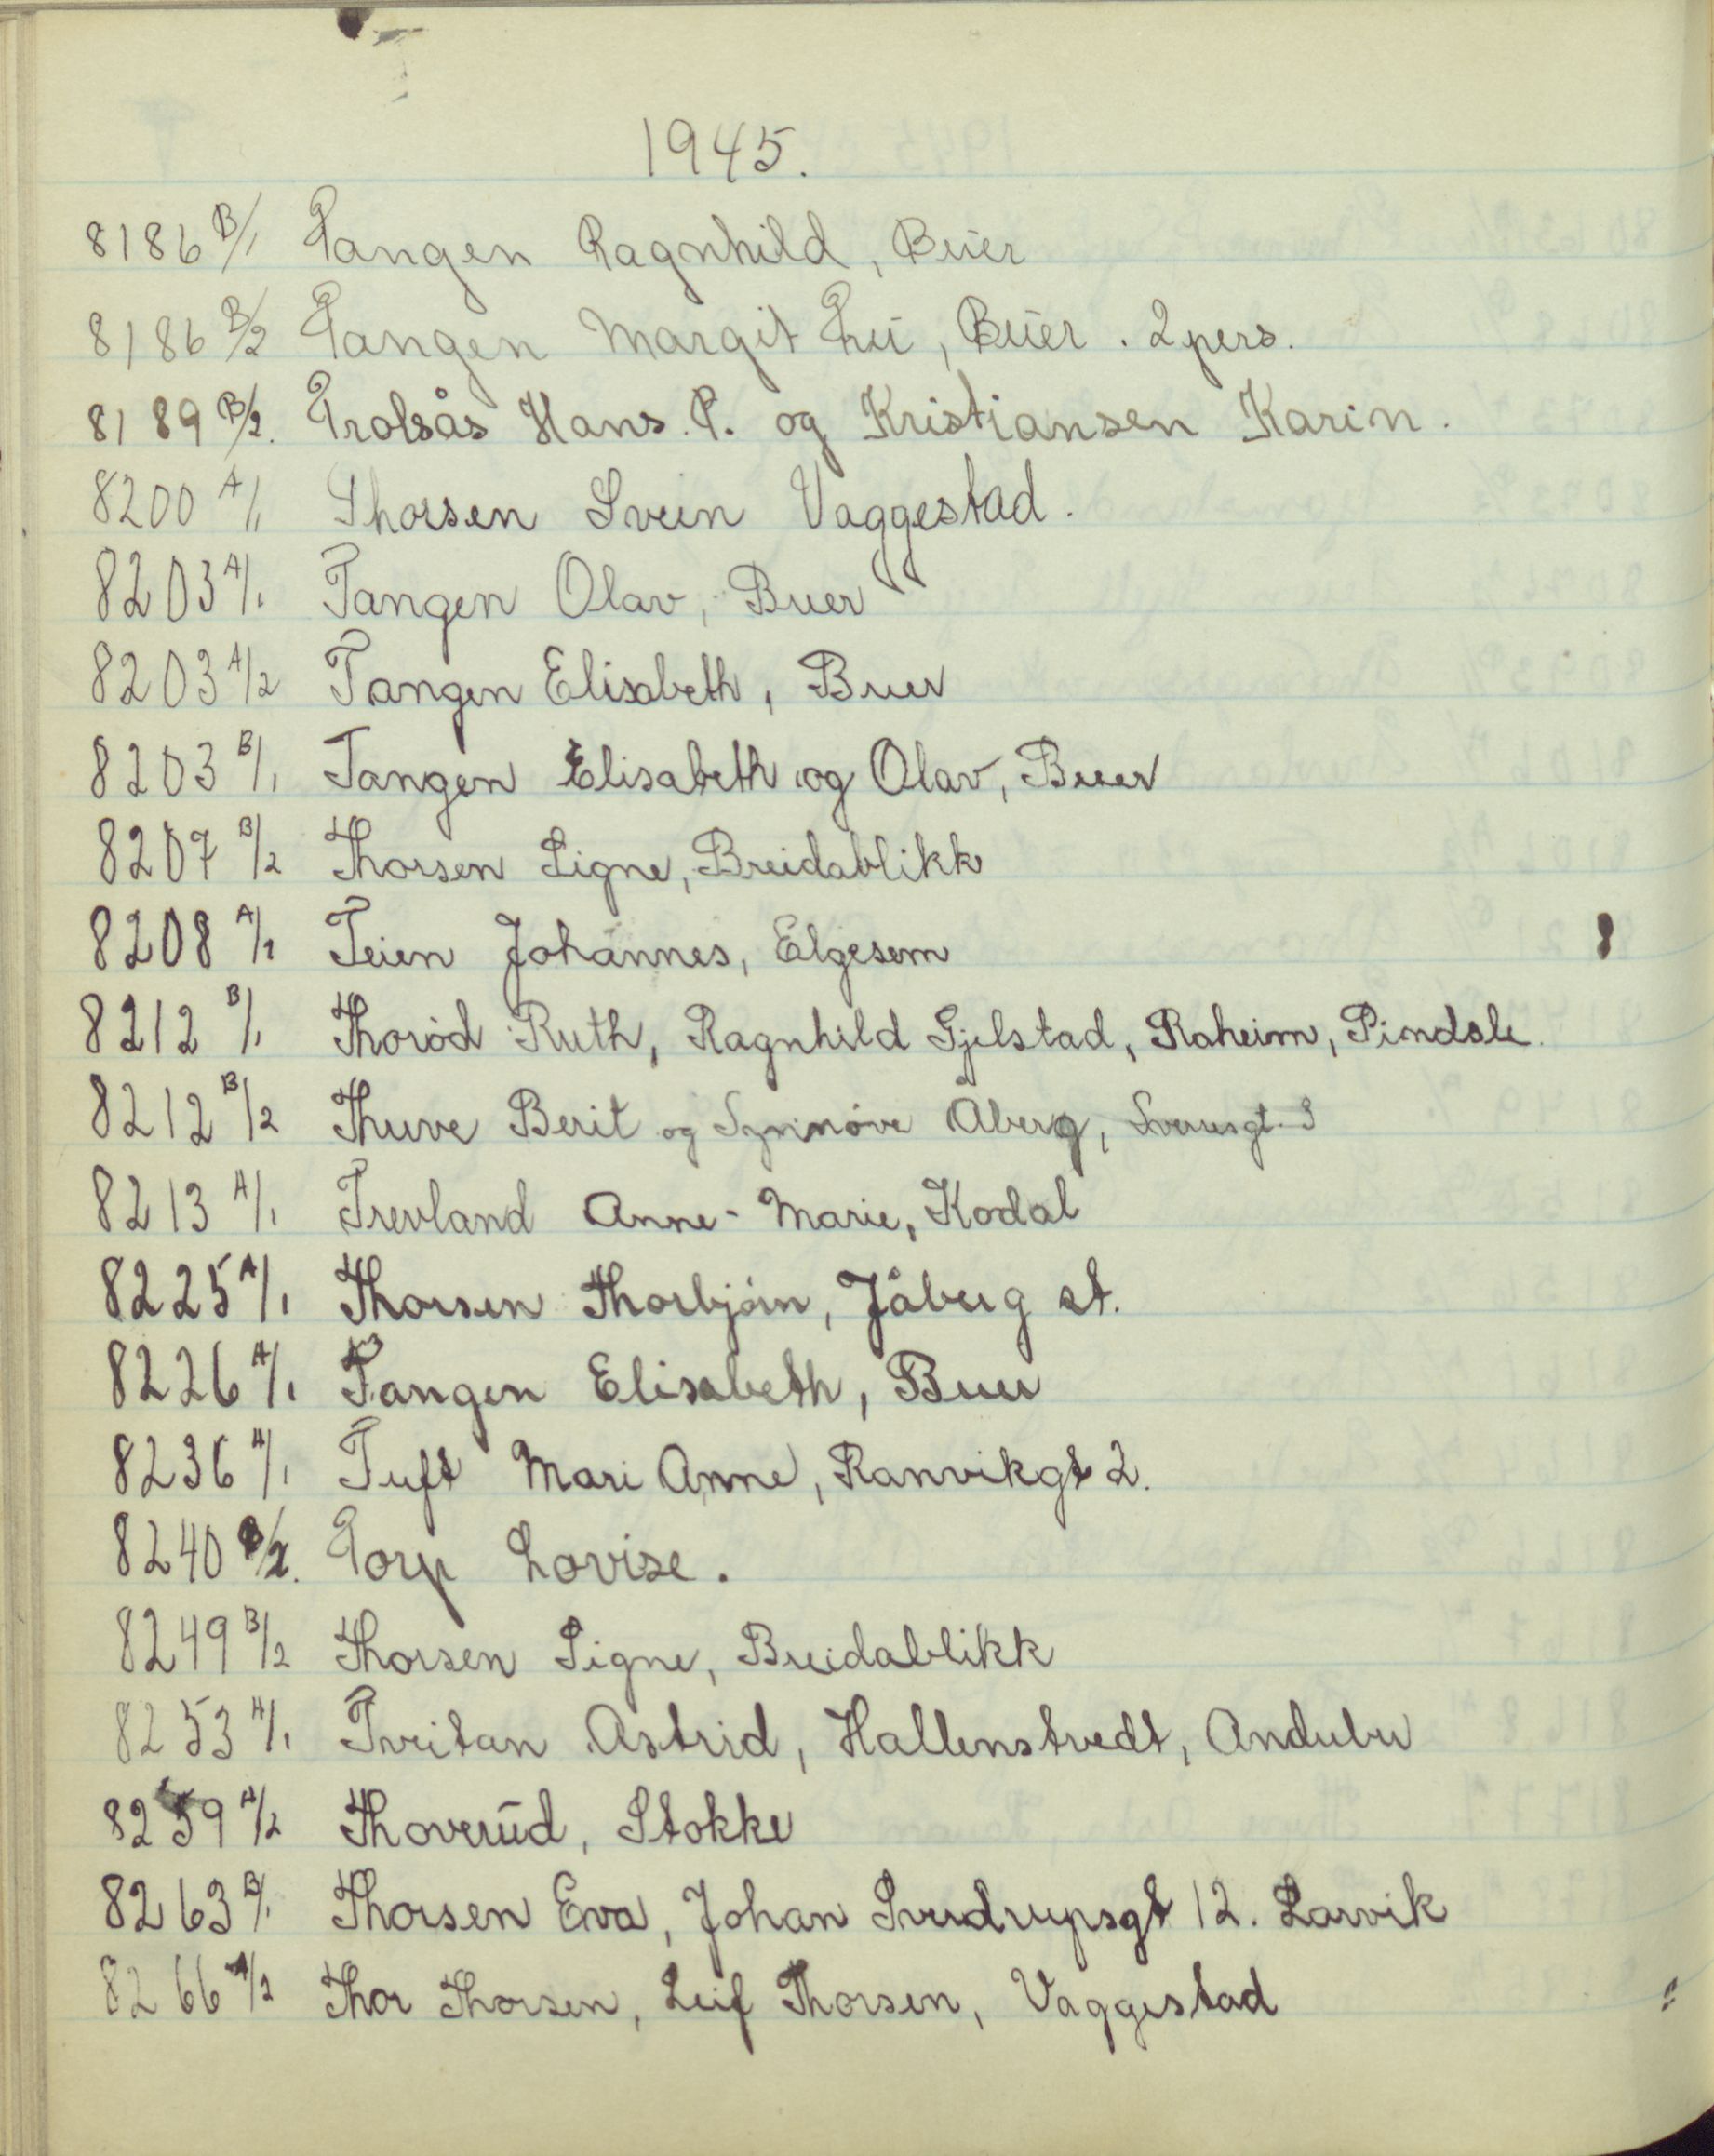 1945.
8186 B/1 Tangen Ragnhild, Buer
8186 B/2 Tangen Margit Lie, Buer. 2 pers.
8189 B/2. Trolsås Hans P. og Kristiansen Karin.
8200 A/1 Thorsen Svein Vaggestad.
8203 A/1 Tangen Olav, Buer
8203 A/2 Tangen Elisabeth, Buer
8203 B/1 Tangen Elisabeth og Olav, Buer
8207 B/2 Thorsen Signe, Breidablikk
8208 A/1 Teien Johannes, Elgesem
8212 B/1 Thorød Ruth, Ragnhild Gjelstad, Raheim, Pindsle.
8212 B/2 Thuve Berit og Synnøve Åberg, Sverresgt. 3
8213 A/1 Trevland Anne-Marie, Kodal
8225 A/1 Thorsen Thorbjørn, Jåberg st.
8226 A/1 Tangen Elisabeth, Buer
8236 A/1 Tuft Mari Anne, Ranvikgt 2.
8240 B/2. Torp Lovise.
8249 B/2 Thorsen Signe, Breidablikk
8253 A/1 Tveitan Astrid, Hallenstvedt, Andebu
8259 A/2 Thoverud, Stokke
8263 B/1 Thorsen Eva, Johan Sverdrupsgt 12. Larvik
8266 A/2 Thor Thorsen, Leif Thorsen, Vaggestad